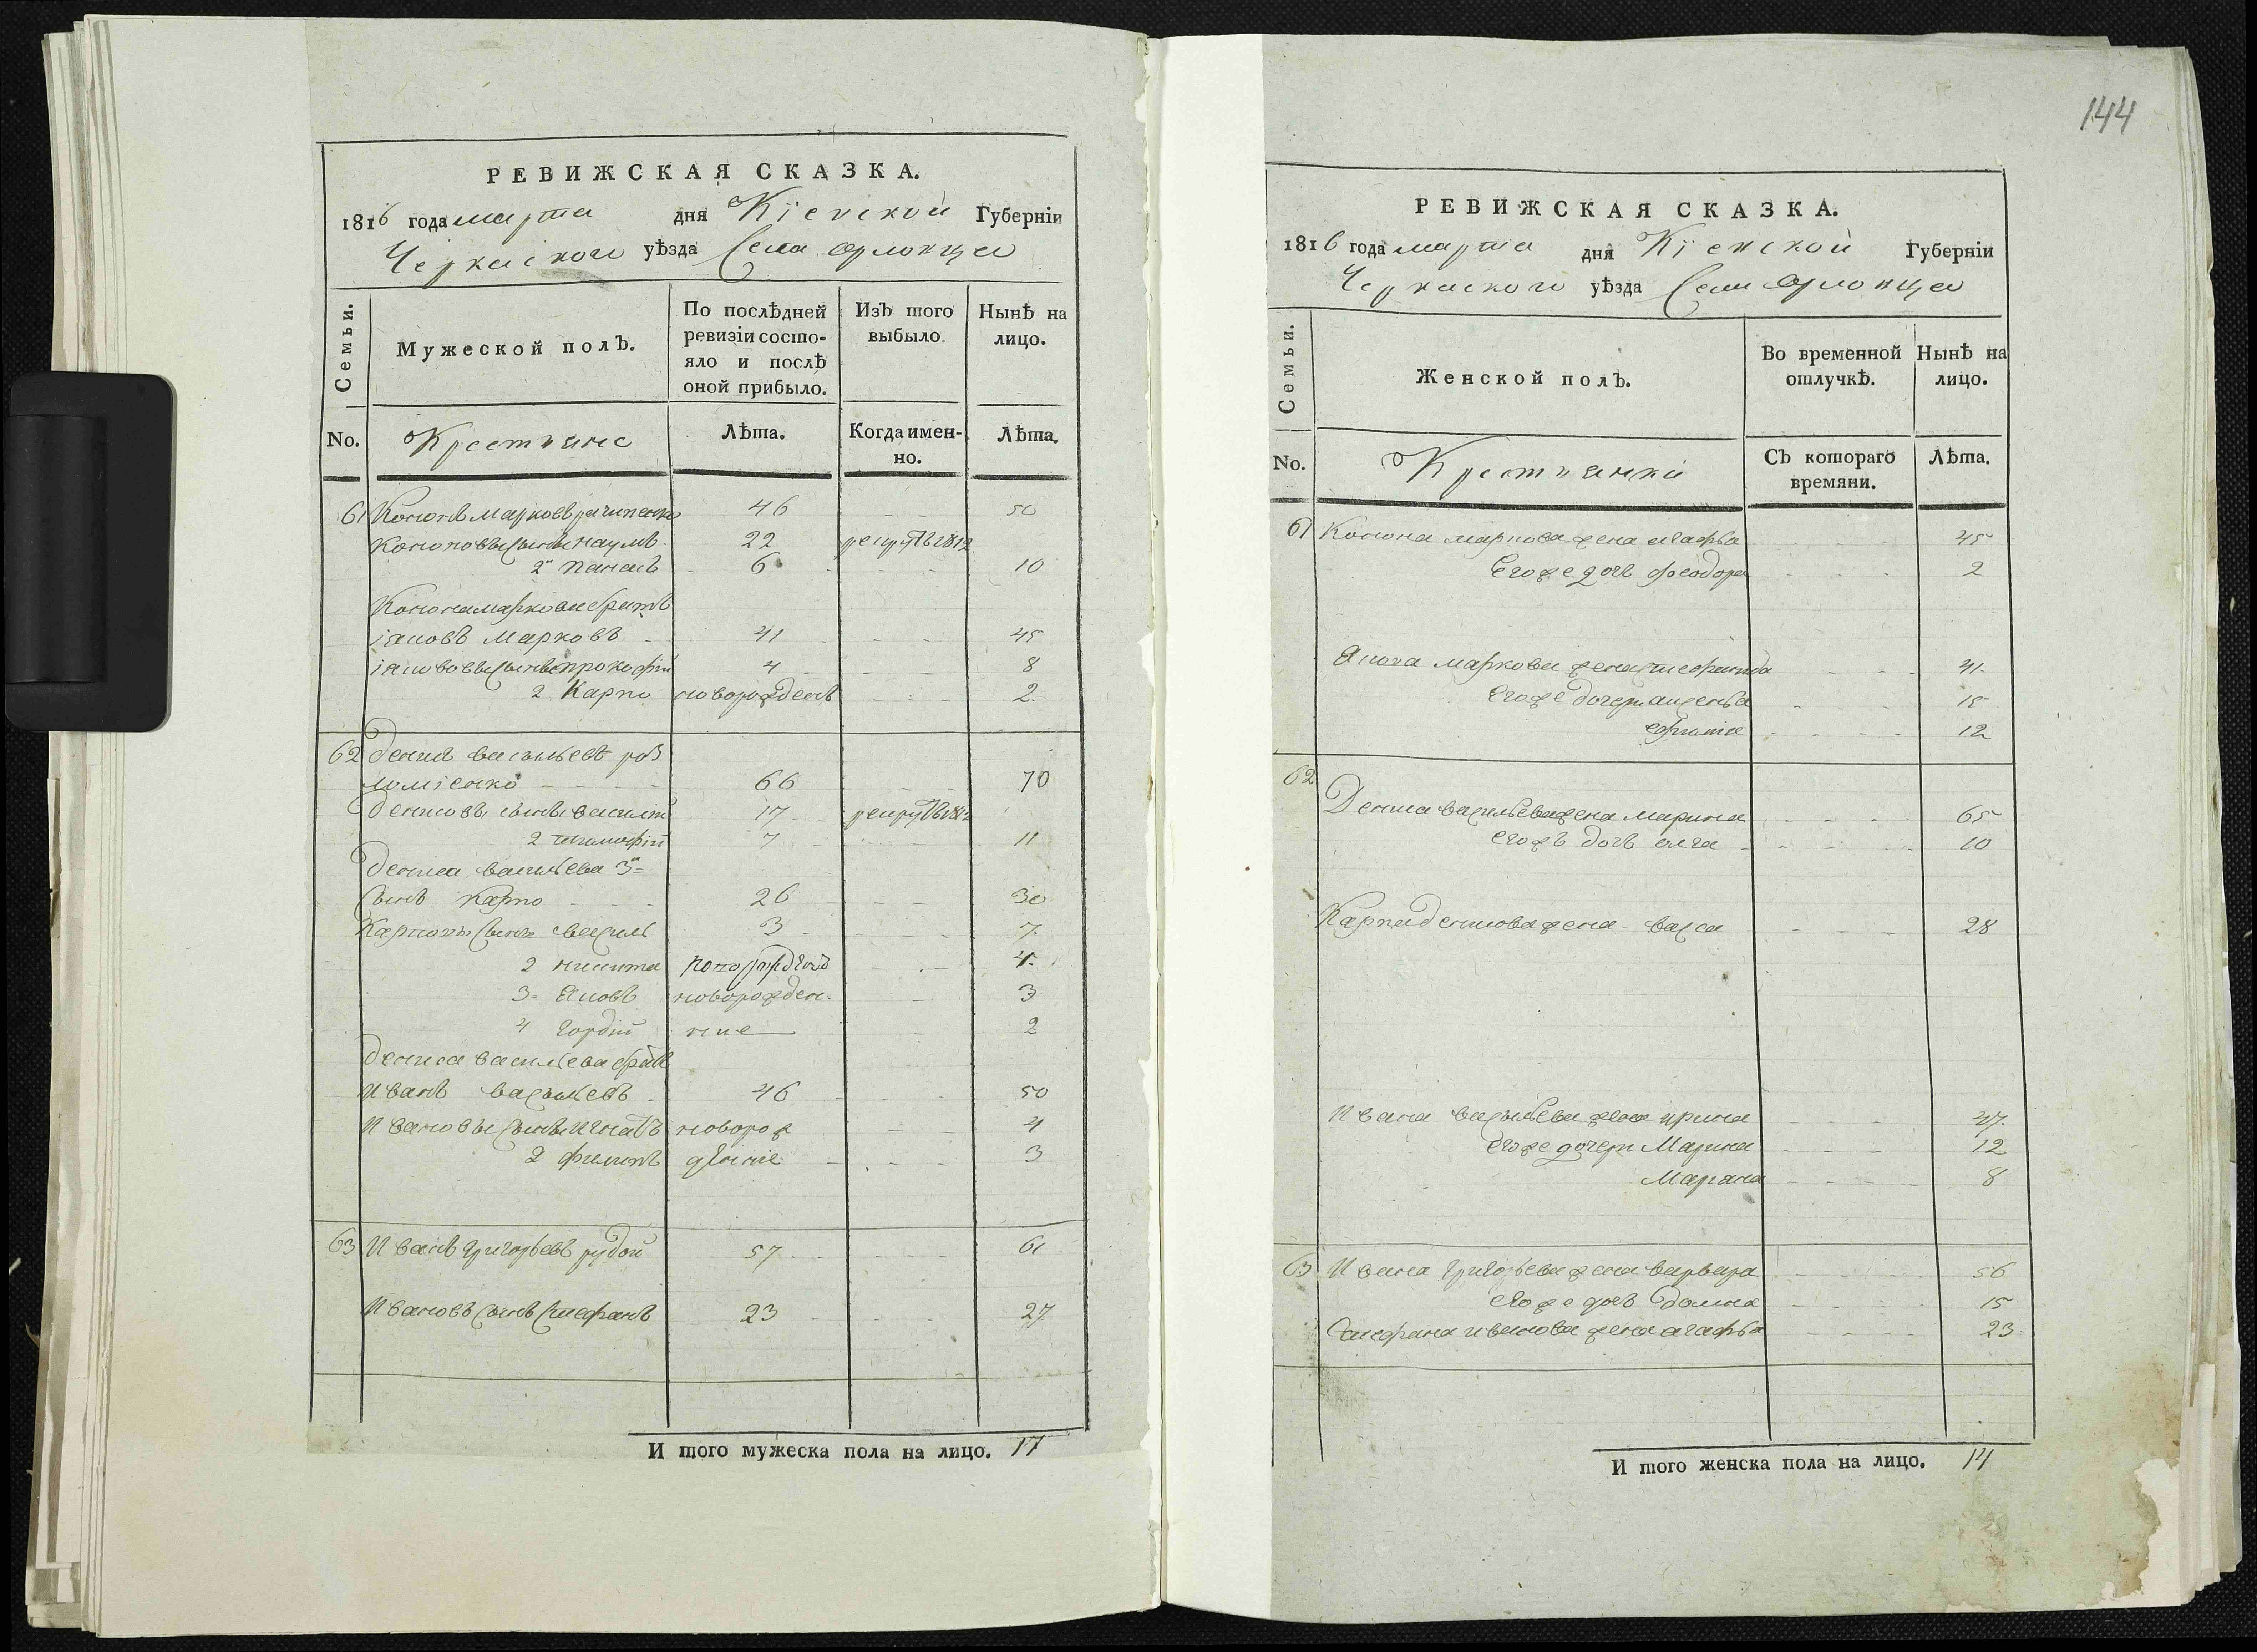 144
РЕВИЖСКАЯ СКАЗКА.
1816 года марта дня Кіевской Губерніи
Черкаского уѣзда Села Орловца
Семьи.
Мужеской полъ.
По послѣдней ревизіи состояло и послѣ оной прибыло.
Изъ того выбыло.
Нынѣ на лицо.
No.
Крестьяне
Лѣта.
Когда именно.
Лѣта.
61 Кононъ Марковъ 46 - - 50
Кононовы сыны Наумъ 22 рекрутъ 1812
2й Панасъ 6 - - 10
Конона Маркова братъ
іяковъ Марковъ 41 - - 45
іяковovы сыны Прокофій 4 - - 8
2 Карпо новорожденъ - - 2
62 Денисъ васильевъ роз
ломіенко 66 70
Денисовы сыны василій 17 рекрутъ 1812
2 тимофій 7 - - 11
Дениса васильева 3й
сынъ Карпо 26 - - 30
Карповы сыны василь 3 - - 7
2 никита новорожденъ - - 4
3 Яковъ новорожден. - 3
4 Гордій ние - 2
Дениса васильева братъ
Иванъ васильевъ 46 - - 50
Ивановы сыны Игнатъ новорож - - 4
2 филипъ деніе - - 3
63 Иванъ Григорьевъ рудой 57 - - 61
Ивановъ сынъ Стефанъ 23 - - 27
И того мужеска пола на лицо. 17
РЕВИЖСКАЯ СКАЗКА.
1816 года марта дня Кіевской Губерніи
Черкаского уѣзда Села Орловца
Семьи.
Женской полъ.
Во временной отлучкѣ.
Нынѣ на лицо.
No.
Крестьянки
Съ котораго времяни.
Лѣта.
61 Конона маркова жена агафья - - 45
Его же дочь феодора - - 2
Якова маркова жена стефанида - - 41
его же дочери 15
12
62
Дениса васильева жена марина - - 65
его жъ дочь олга - - 10
Карпа денисова жена васса - - 28
Ивана васильева жена ирина - - 47
его же дочери Марина - - 12
Мариана - - 8
63 Ивана григорьева жена варвара - - 56
его же дочь Домна - - 15
Стефана иванова жена агафья - - 23
И того женска пола на лицо. 14